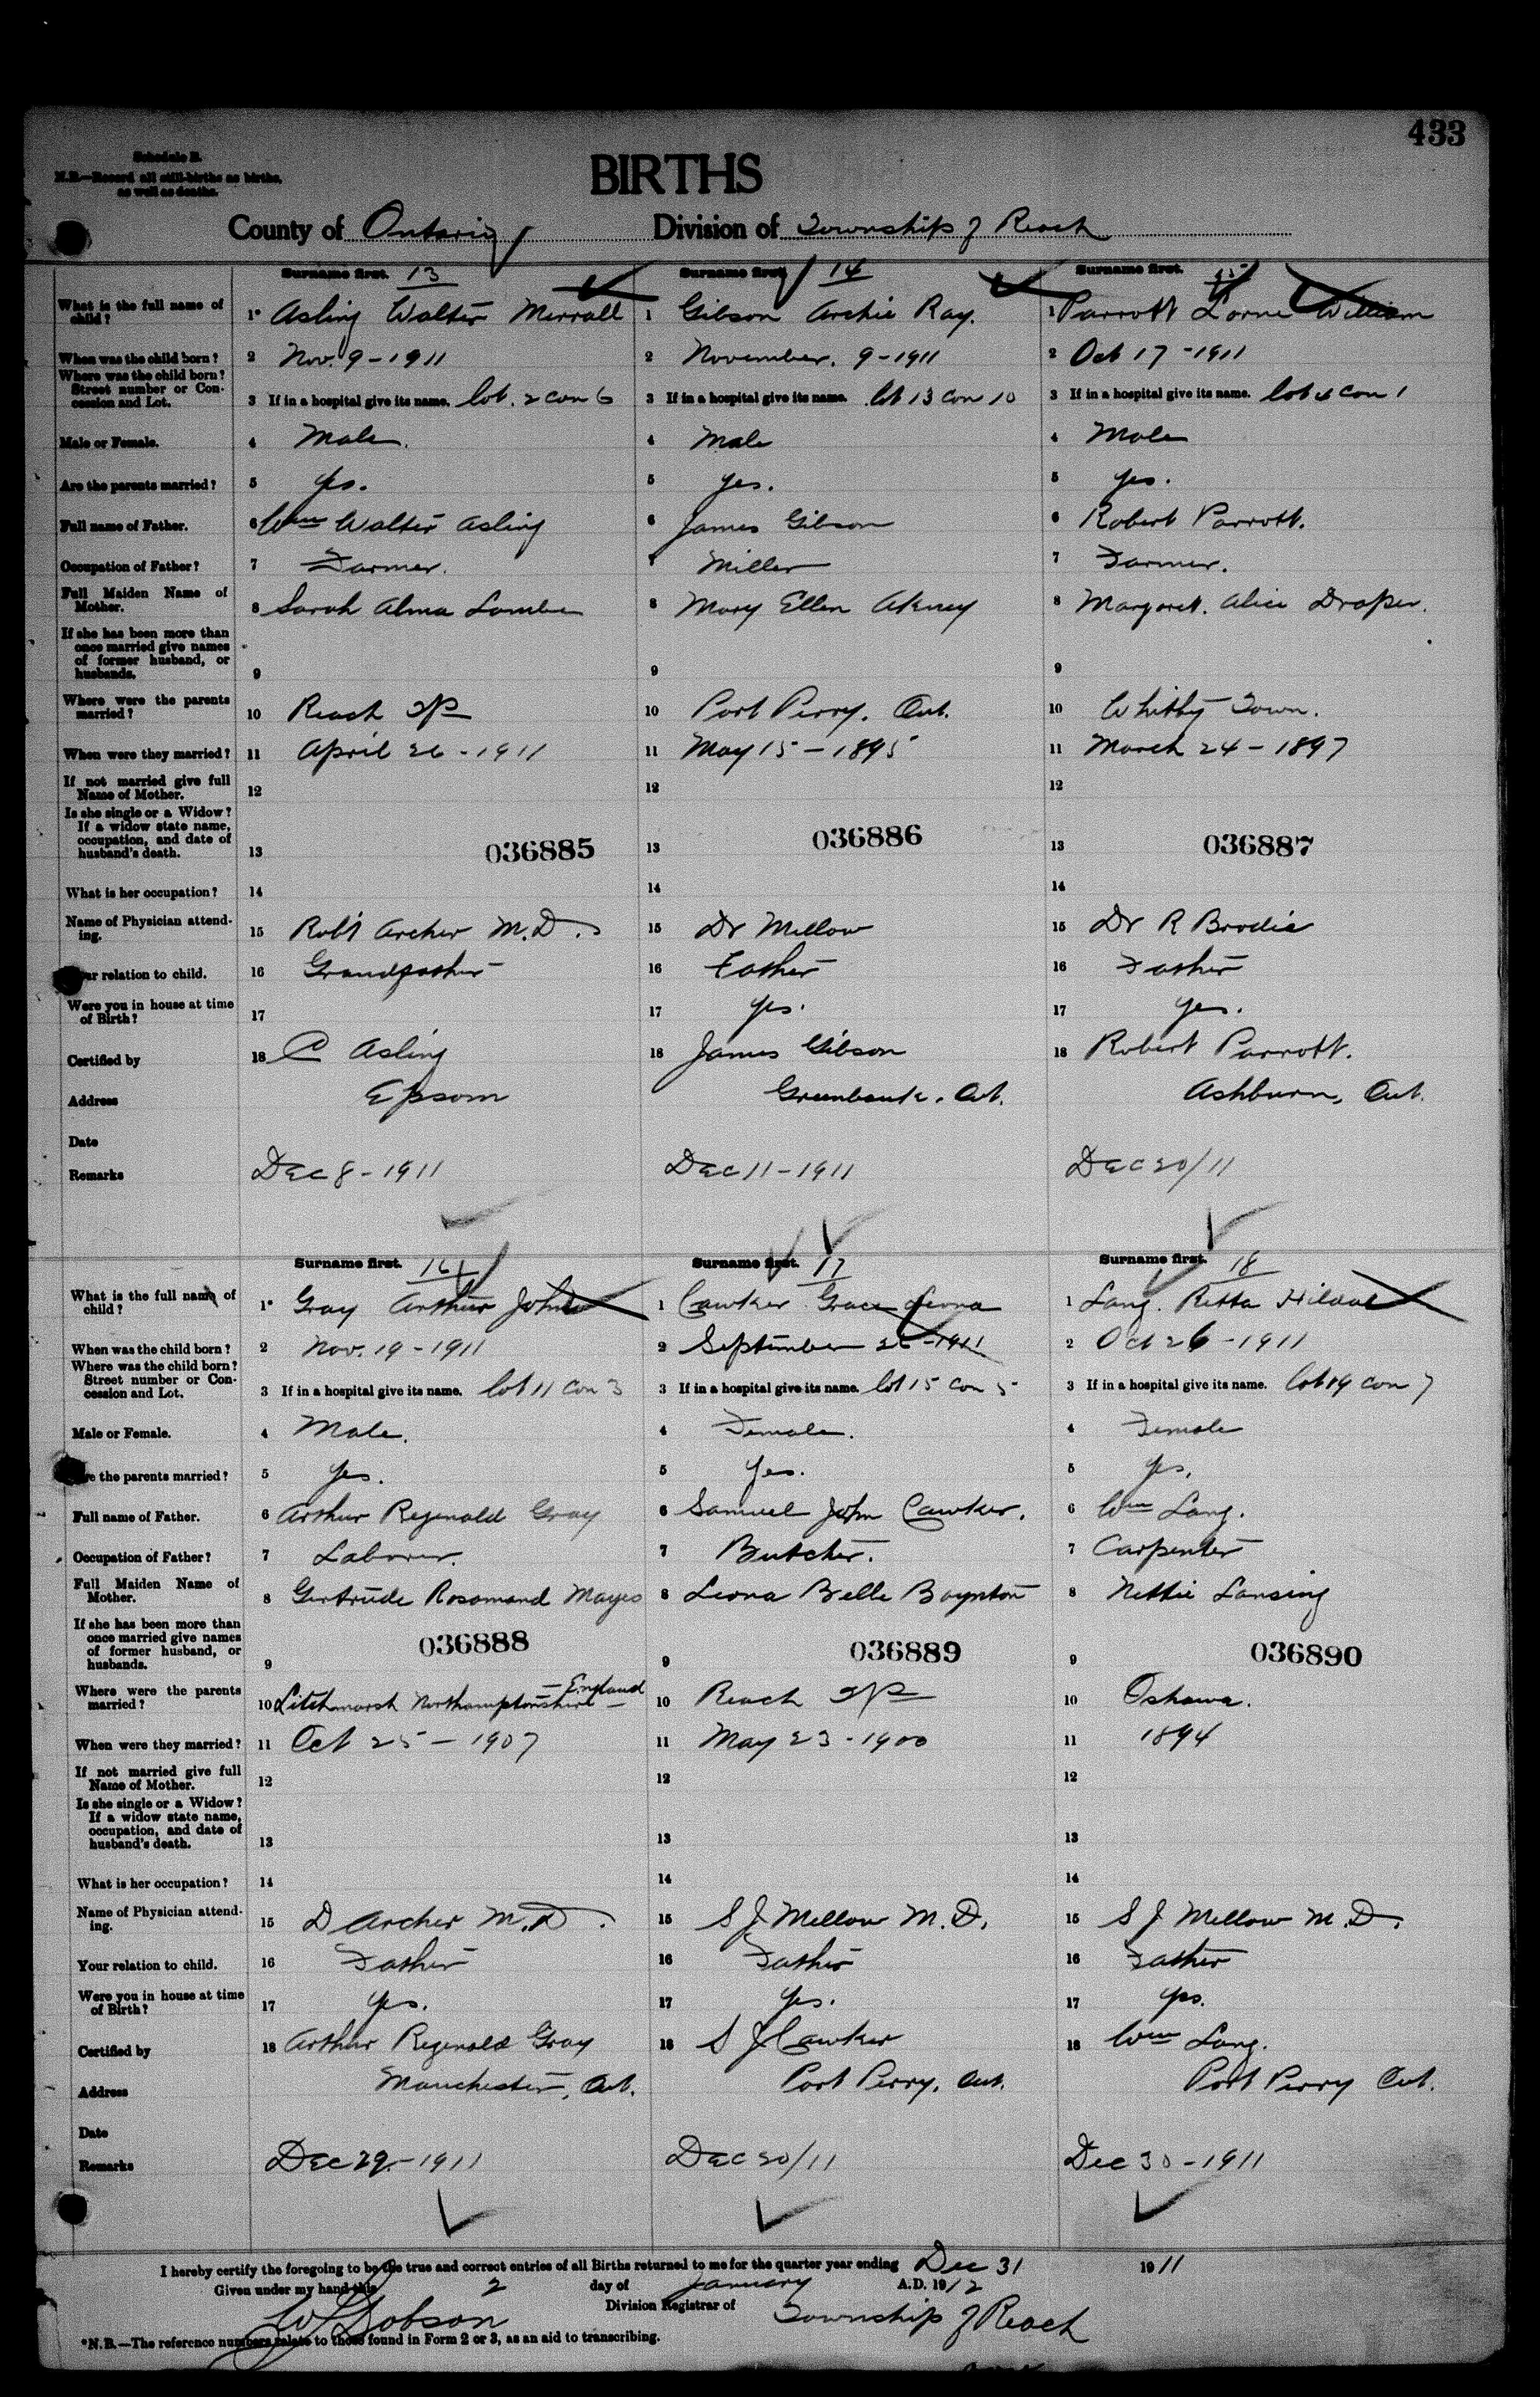 433
Schedule B.
N.B.—Record all still-births as births,
as well as deaths.
BIRTHS
County of Ontario Division of Township of Reach
Surname first. 13
What is the full name of child? 1* Asling Walter Merrall
When was the child born? 2 Nov. 9-1911
Where was the child born? Street number or Concession and Lot. 3 If in a hospital give its name. lot. 2 con 6
Male or Female. 4 Male.
Are the parents married? 5 yes.
Full name of Father. 6 Wm Walter Asling
Occupation of Father? 7 Farmer.
Full Maiden Name of Mother. 8 Sarah Alma Lambe
If she has been more than once married give names of former husband, or husbands. 9
Where were the parents married? 10 Reach T/P
When were they married? 11 April 26-1911
If not married give full Name of Mother. 12
Is she single or a Widow? If a widow state name, occupation, and date of husband's death. 13 036885
What is her occupation? 14
Name of Physician attending. 15 Robt Archer M.D.
relation to child. 16 Grandfather
Were you in house at time of Birth? 17
Certified by 18 C Asling
Address Epsom
Date
Remarks Dec 8-1911
Surname first 14
1 Gibson Archie Ray.
2 November. 9-1911
3 If in a hospital give its name. lot 13 con 10
4 Male
5 yes.
6 James Gibson
7 Miller
8 Mary Ellen
9
10 Port Perry. Ont.
11 May 15-1895
12
13 036886
14
15 Dr Mellow
16 Father
17 yes.
18 James Gibson
Greenbank. Ont.
Dec 11-1911
Surname first. 15
1 Parrott Lorne William
2 Oct 17-1911
3 If in a hospital give its name. lot con 1
4 Male
5 yes.
6 Robert Parrott.
7 Farmer.
8 Margaret. Alice Draper.
9
10 Whitby Town.
11 March 24-1897
12
13 036887
14
15 Dr R Brodie
16 Father
17 yes.
18 Robert Parrott.
Ashburn, Ont.
Dec 20/11
Surname first. 16
What is the full name of child? 1* Gray Arthur John
When was the child born? 2 Nov. 19-1911
Where was the child born? Street number or Concession and Lot. 3 If in a hospital give its name. lot 11 con 3
Male or Female. 4 Male.
the parents married? 5 yes.
Full name of Father. 6 Arthur Reginald Gray
Occupation of Father? 7 Laborer.
Full Maiden Name of Mother. 8 Gertrude Rosamand Mayes
If she has been more than once married give names of former husband, or husbands. 9 036888
Where were the parents married? 10 Litchmarsh Northamptonshire - England
When were they married? 11 Oct 25-1907
If not married give full Name of Mother. 12
Is she single or a Widow? If a widow state name, occupation, and date of husband's death. 13
What is her occupation? 14
Name of Physician attending. 15 D Archer M.D.
Your relation to child. 16 Father
Were you in house at time of Birth? 17 yes.
Certified by 18 Arthur Reginald Gray
Address Manchester, Ont.
Date
Remarks Dec 29-1911
Surname first. 17
1 Cawker Grace Leona
2 September 26-1911
3 If in a hospital give its name. lot 15 con 5
4 Female.
5 Yes.
6 Samuel John Cawker.
7 Butcher.
8 Leona Belle Boynton
9 036889
10 Reach T/P
11 May 23-1900
12
13
14
15 S J Mellow M.D.
16 Father
17 yes.
18 S J Cawker
Port Perry, Ont.
Dec 30/11
Surname first. 18
1 Lang. Retta Hilda
2 Oct 26-1911
3 If in a hospital give its name. lot 19 con 7
4 Female
5 yes.
6 Wm Lang.
7 Carpenter
8 Nettie Lansing
9 036890
10 Oshawa.
11 1894
12
13
14
15 S J Mellow M.D.
16 Father
17 yes.
18 Wm Lang.
Port Perry Ont.
Dec 30-1911
I hereby certify the foregoing to be the true and correct entries of all Births returned to me for the quarter year ending Dec 31 1911
Given under my hand this 2 day of January A.D. 1912
W Dobson Division Registrar of Township of Reach
*N.B.—The reference numbers relate to those found in Form 2 or 3, as an aid to transcribing.